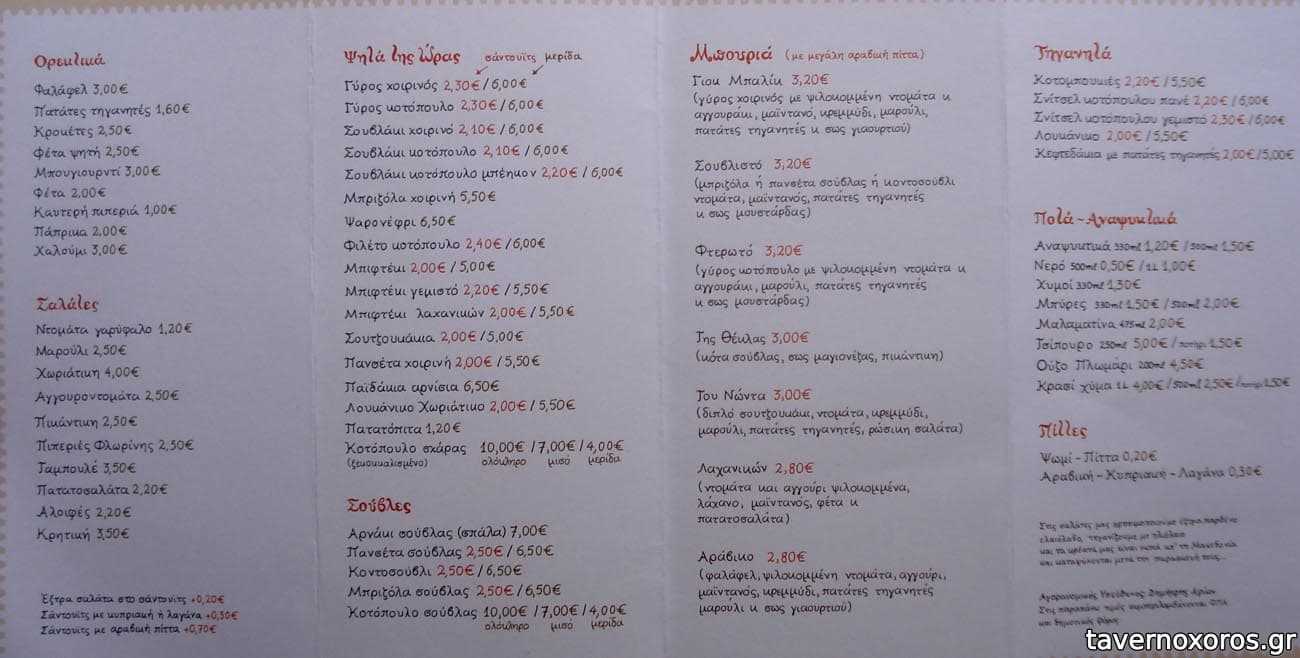 Ορεκτικά
Φαλάφελ 3,00€
Πατάτες τηγανητές 1,60€
Κροκέτες 2,50€
Φέτα ψητή 2,50€
Μπουγιουρντί 3,00€
Φέτα 2,00€
Καυτερή πιπεριά 1,00€
Πάπρικα 2,00€
Χαλούμι 3,00€
Σαλάτες
Ντομάτα γαρύφαλο 1,20€
Μαρούλι 2,50€
Χωριάτικη 4,00€
Αγγουροντομάτα 2,50€
Πικάντικη 2,50€
Πιπεριές Φλωρίνης 2,50€
Ταμπουλέ 3,50€
Πατατοσαλάτα 2,20€
Αλοιφές 2,20€
Κρητική 3,50€
Έξτρα σαλάτα στο σάντουιτς +0,20€
Σάντουϊτς με κυπριακή ή λαγάνα +0,30€
Σάντουϊτς με αραβική πίττα +0,70€
Ψητά της Ώρας σάντουϊτς μερίδα
Γύρος χοιρινός 2,30€ / 6,00€
Γύρος κοτόπουλο 2,30€ / 6,00€
Σουβλάκι χοιρινό 2,10€ / 6,00€
Σουβλάκι κοτόπουλο 2,10€ / 6,00€
Σουβλάκι κοτόπουλο μπέηκον 2,20€ / 6,00€
Μπριζόλα χοιρινή 5,50€
Ψαρονέφρι 6,50€
Φιλέτο κοτόπουλο 2,40€ / 6,00€
Μπιφτέκι 2,00€ / 5,00€
Μπιφτέκι γεμιστό 2,20€ / 5,50€
Μπιφτέκι λαχανικών 2,00€ / 5,50€
Σουτζουκάκια 2,00€ / 5,00€
Πανσέτα χοιρινή 2,00€ / 5,50€
Παϊδάκια αρνίσια 6,50€
Λουκάνικο Χωριάτικο 2,00€ / 5,50€
Πατατόπιτα 1,20€
Κοτόπουλο σχάρας 10,00€ / 7,00€ / 4,00€
(ξεκοκκαλισμένο) ολόκληρο μισό μερίδα
Σούβλες
Αρνάκι σούβλας (σπάλα) 7,00€
Πανσέτα σούβλας 2,50€ / 6,50€
Κοντοσούβλι 2,50€ / 6,50€
Μπριζόλα σούβλας 2,50€ / 6,50€
Κοτόπουλο σούβλας 10,00€ / 7,00€ / 4,00€
ολόκληρο μισό μερίδα
Μπουριά (με μεγάλη αραβική πίττα)
Γιοκ Μπαλίκ 3,20€
(γύρος χοιρινός με ψιλοκομμένη ντομάτα κ
αγγουράκι, μαϊντανό, κρεμμύδι, μαρούλι,
πατάτες τηγανητές κ σως γιαουρτιού)
Σουβλιστό 3,20€
(μπριζόλα ή πανσέτα σούβλας ή κοντοσούβλι
ντομάτα, μαϊντανός, πατάτες τηγανητές
κ σως μουστάρδας)
Φτερωτό 3,20€
(γύρος κοτόπουλο με ψιλοκομμένη ντομάτα κ
αγγουράκι, μαρούλι, πατάτες τηγανητές
κ σως μουστάρδας)
Της Θέκλας 3,00€
(κότα σούβλας, σως μαγιονέζας, πικάντικη)
Του Νώντα 3,00€
(διπλό σουτζουκάκι, ντομάτα, κρεμμύδι,
μαρούλι, πατάτες τηγανητές, ρώσικη σαλάτα)
Λαχανικών 2,80€
(ντομάτα και αγγούρι ψιλοκομμένα,
λάχανο, μαϊντανός, φέτα κ
πατατοσαλάτα)
Αράβικο 2,80€
(φαλάφελ, ψιλοκομμένη ντομάτα, αγγούρι,
μαϊντανός, κρεμμύδι, πατάτες τηγανητές
μαρούλι κ σως γιαουρτιού)
Τηγανητά
Κοτομπουκιές 2,20€ / 5,50€
Σνίτσελ κοτόπουλου πανέ 2,20€ / 6,00€
Σνίτσελ κοτόπουλου γεμιστό 2,30€ / 6,00€
Λουκάνικο 2,00€ / 5,50€
Κεφτεδάκια με πατάτες τηγανητές 2,00€ / 5,00€
Ποτά - Αναψυκτικά
Αναψυκτικά 330ml 1,20€ / 500ml 1,50€
Νερό 500ml 0,50€ / 1L 1,00€
Χυμοί 330ml 1,30€
Μπύρες 330ml 1,50€ / 500ml 2,00€
Μαλαματίνα 475ml 2,00€
Τσίπουρο 250ml 5,00€ / ποτήρι 1,50€
Ούζο Πλωμάρι 200ml 4,50€
Κρασί χύμα 1L 4,00€ / 500ml 2,50€ / ποτήρι 1,50€
Πίττες
Ψωμί - Πίττα 0,20€
Αραβική - Κυπριακή - Λαγάνα 0,30€
Στις σαλάτες μας χρησιμοποιούμε έξτρα παρθένο
ελαιόλαδο, τηγανίζουμε με ηλιέλαιο
και τα κρέατά μας είναι νωπά απ' τη Μακεδονία
και καταψύχονται μετά την παρασκευή τους...
Αγορανομικός Υπεύθυνος Δημήτρης
Στις παραπάνω τιμές συμπεριλαμβάνονται ΦΠΑ
και δημοτικός φόρος
tavernoxoros.gr